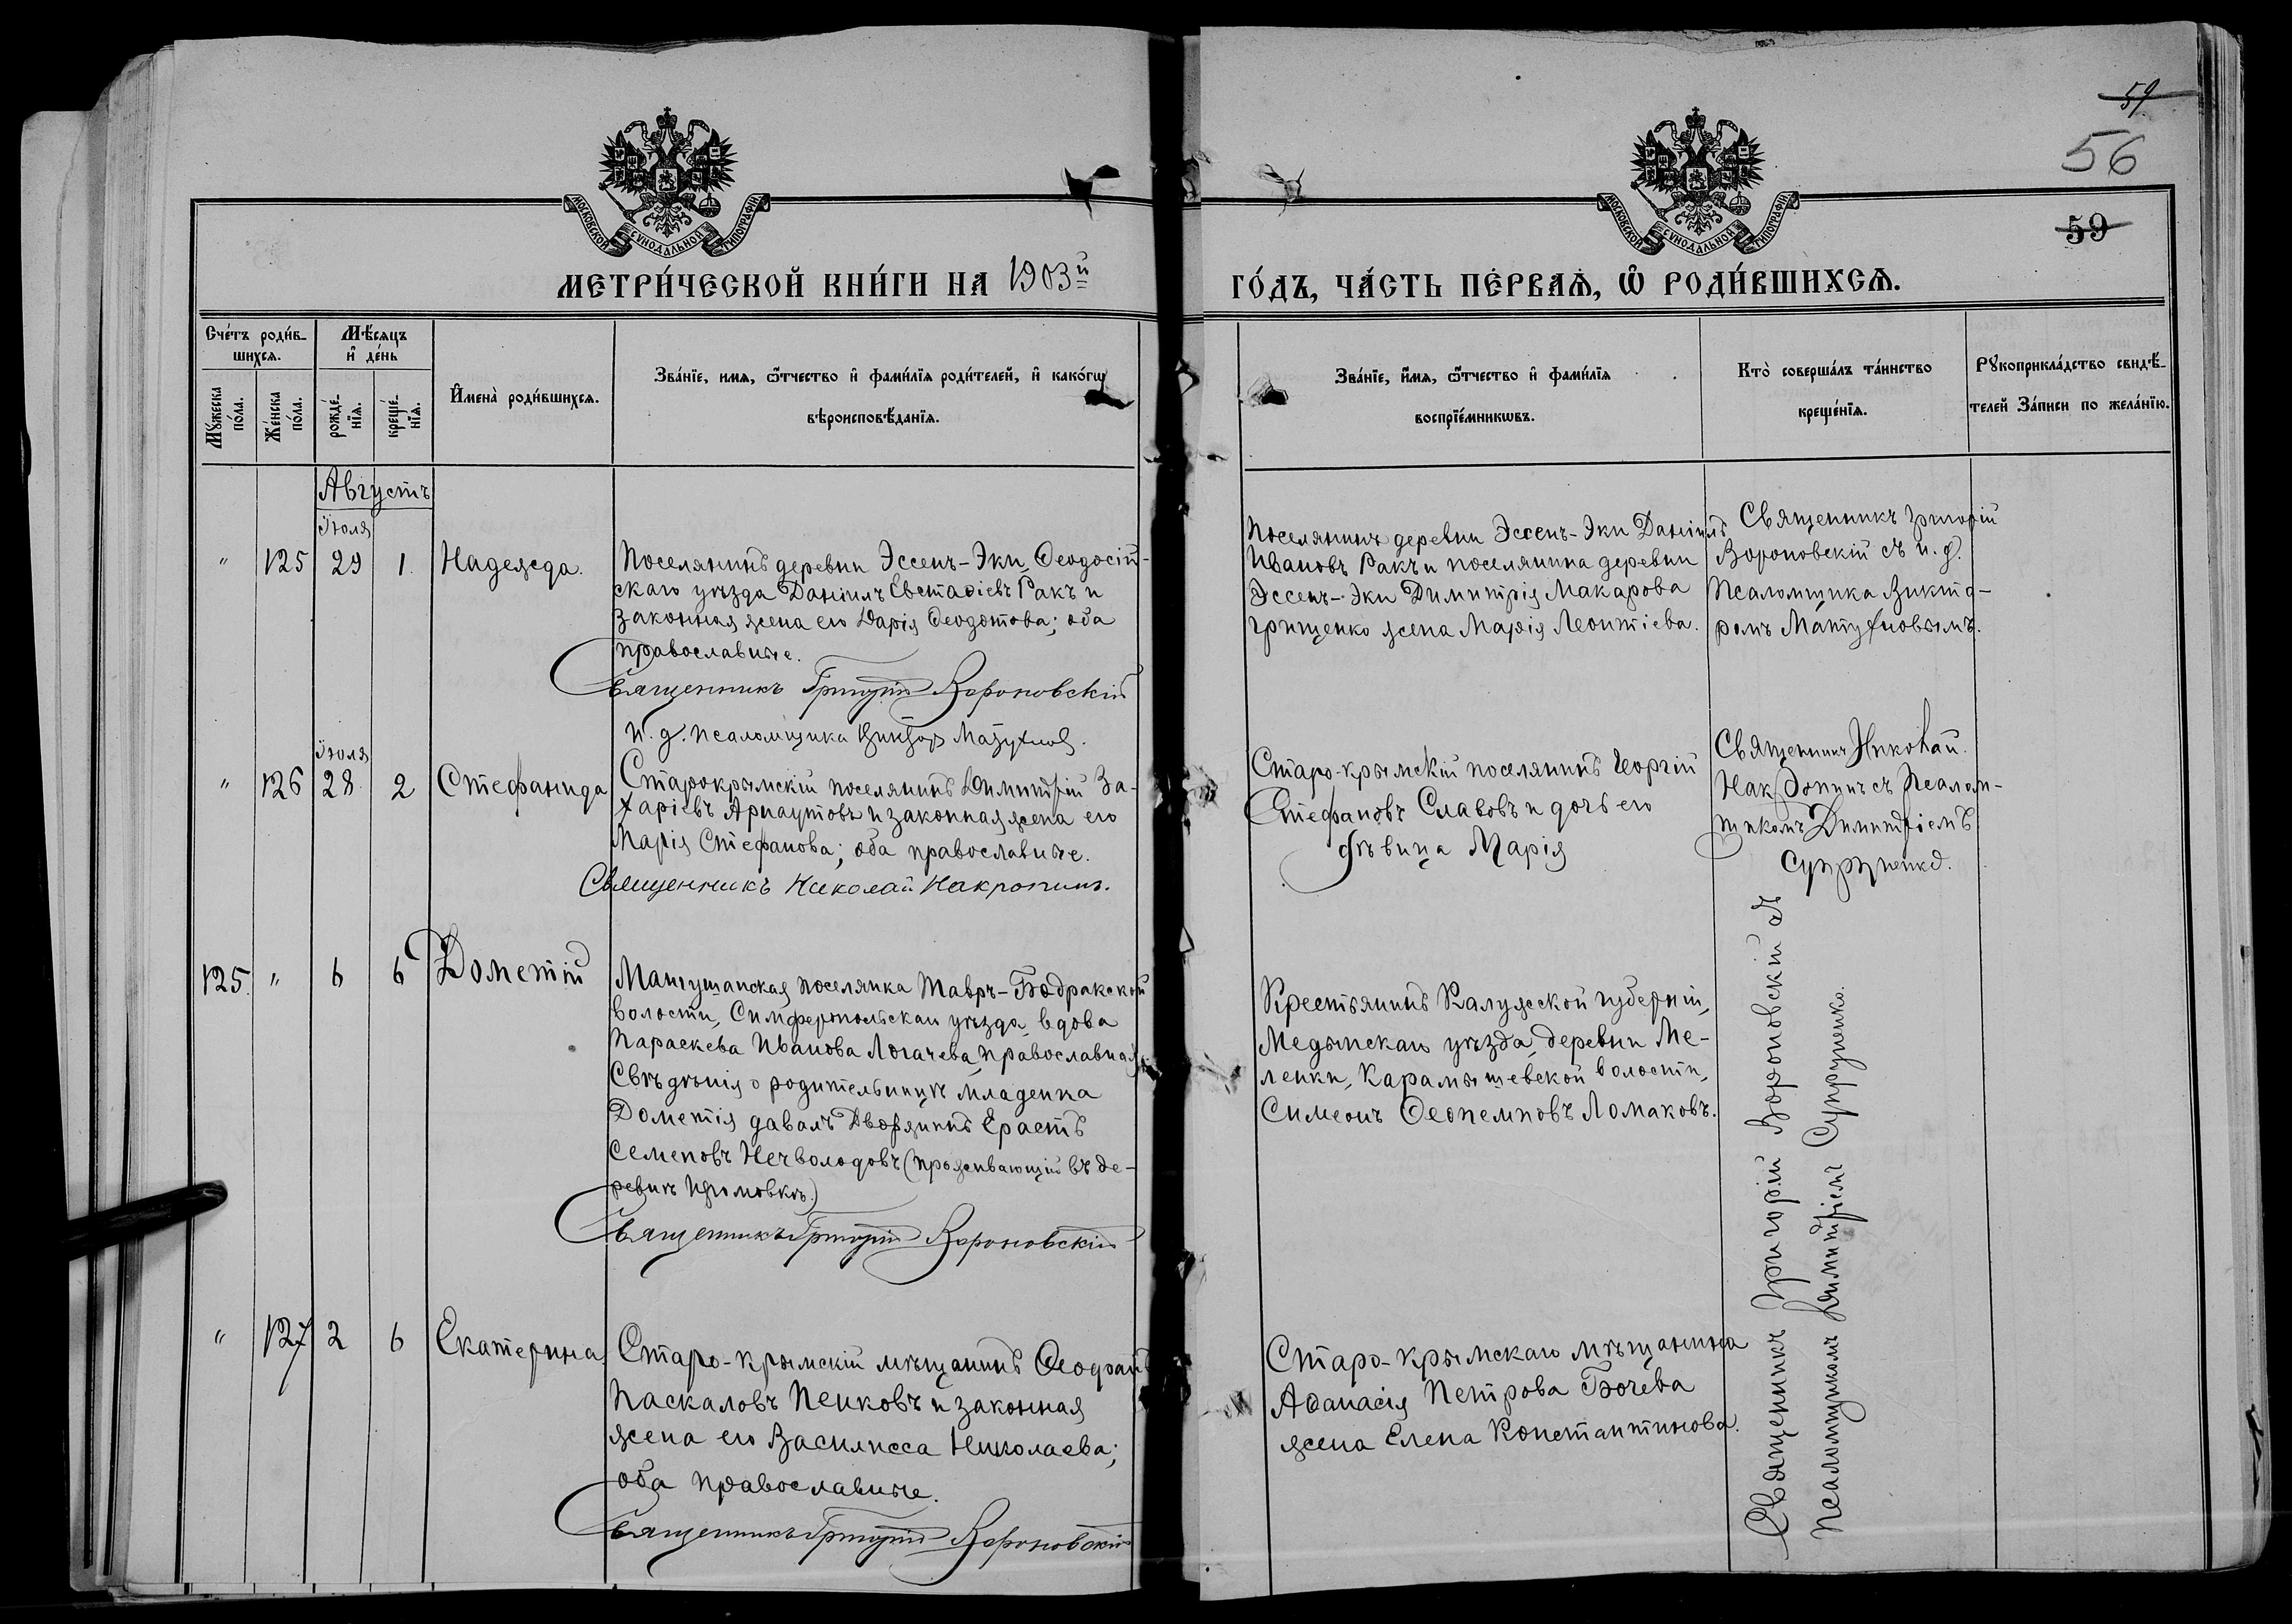 59
56
59
МОСКОВСКОЙ СѴНОДАЛЬНОЙ ТИПОГРАФІИ
МОСКОВСКОЙ СѴНОДАЛЬНОЙ ТИПОГРАФІИ
МЕТРИ́ЧЕСКОЙ КНИ́ГИ НА 1903й
ГО́ДЪ, ЧА́СТЬ ПЕ́РВАѦ, Ѡ҆ РОДИ́ВШИХСѦ.
Сче́тъ роди́в-
шихсѧ.
Мꙋ́жеска по́ла.
Же́нска по́ла.
Мѣ́сѧцъ
и҆ де́нь
рожде́-
нїѧ.
креще́-
нїѧ.
И҆мена̀ роди́вшихсѧ.
Зва́нїе, имѧ, ѻ҆́тчество и҆ фами́лїѧ роди́телей, и҆ како́гѡ
вѣроисповѣ́данїѧ.
Зва́нїе, и҆́мѧ, ѻ҆́тчество и҆ фами́лїѧ
воспрїе́мникѡвъ.
Кто̀ соверша́лъ та́инство
креще́нїѧ.
Рꙋкоприкла́дство свидѣ́-
телей За́писи по жела́нїю.
Августъ
Іюля
" 125 29 1. Надежда.
Поселянинъ деревни Эссенъ-Эки, Ѳеодосій-
скаго уѣзда Даніилъ Евстаѳіевъ Ракъ и
законная жена его Дарія Ѳеодотова; оба
православные.
Священникъ Григорій Вороновскій
и. д. псаломщика Викторъ
Поселянинъ деревни Эссенъ-Эки Даніилъ
Ивановъ Ракъ и поселянина деревни
Эссенъ-Эки Димитрія Макарова
Грищенко жена Марія Леонтіева.
Священникъ Григорій
Вороновскій съ и. д.
Псаломщика Викто-
ромъ
Іюля
" 126 28. 2 Стефанида
Старокрымскій поселянинъ Димитрій За-
харіевъ Арнаутовъ и законная жена его
Марія Стефанова; оба православные.
Священникъ Николай Накропинъ.
Старо-крымскій поселянинъ Георгій
Стефановъ Славовъ и дочь его
дѣвица Марія
Священникъ Николай
Накропинъ съ Псалом-
щикомъ Димитріемъ
Супруненко.
125. " 6 6 Дометій
Мангушская поселянка Тавръ-Бодракской
волости, Симферопольскаго уѣзда, вдова
Параскева Иванова Логачева, православная.
Свѣдѣнія о родительницѣ младенца
Дометія давалъ Дворянинъ Ерастъ
Семеновъ Нечволодовъ (проживающій въ де-
ревнѣ Изюмовкѣ.)
Священникъ Григорій Вороновскій
Крестьянинъ Калужской губерніи,
Медынскаго уѣзда, деревни Ме-
ленки, Карамышевской волости,
Симеонъ Ѳеопемптовъ Ломаковъ.
Священникъ Григорій Вороновскій съ
Псаломщикомъ Димитріемъ Супруненко.
" 127 2 6 Екатерина
Старо-Крымскій мѣщанинъ Ѳеофанъ
Паскаловъ Пенковъ и законная
жена его Василисса Николаева;
оба православные.
Священникъ Григорій Вороновскій
Старо-Крымскаго мѣщанина
Аѳанасія Петрова Бочева
жена Елена Константинова.